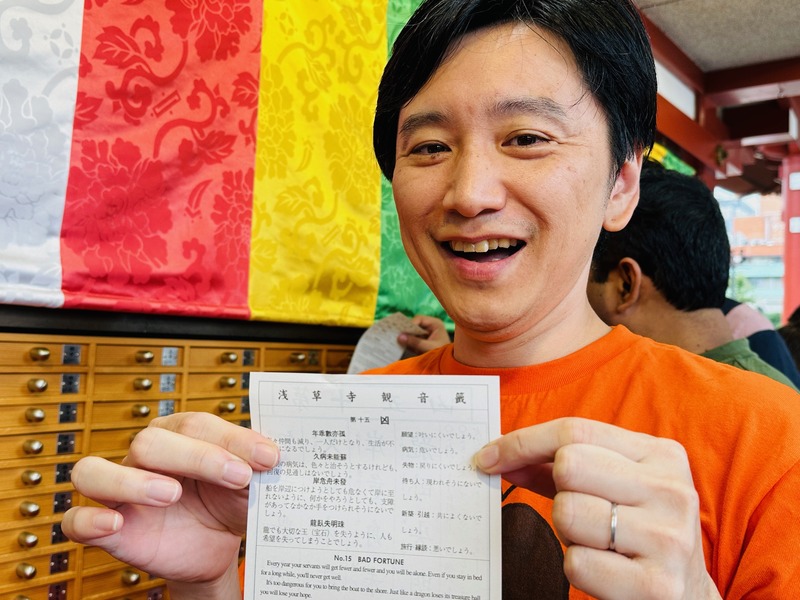 浅草寺観音籤
第十五 凶
年乖數亦孤
仲間も減り、一人だけとなり、生活が不
になるでしょう。
久病未能蘇
の病気は、色々と治そうとするけれども、
回復の見通しはないでしょう。
岸危舟未發
船を岸辺につけようとしても危なくて岸に至
れないように、何かをやろうとしても、支障
があってなかなか手をつけられそうにないで
しょう。
龍臥失明珠
龍でも大切な玉（宝石）を失うように、人も
希望を失ってしまうことでしょう。
願望：叶いにくいでしょう。
病気：危いでしょう。
失物：戻りにくいでしょう。
待ち人：現われそうにないで
しょう。
新築・引越：共によくないで
しょう。
旅行・縁談：悪いでしょう。
No.15 BAD FORTUNE
Every year your servants will get fewer and fewer and you will be alone. Even if you stay in bed
for a long while, you'll never get well.
It's too dangerous for you to bring the boat to the shore. Just like a dragon loses its treasury ball
you will lose your hope.